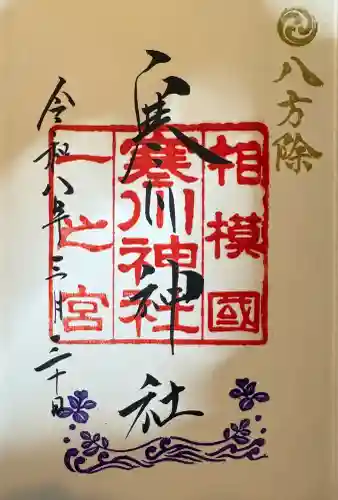 八方除
相模國
寒川神社
一之宮
寒川神社
令和八年三月二十日